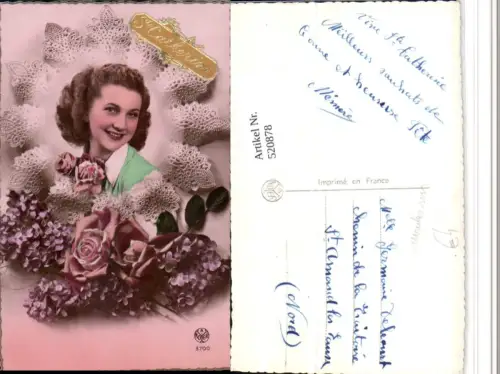 Ste Catherine
Vive Ste Catherine
Meilleurs souhaits de
bonne et heureuse fête
Mémère
Artikel Nr.
520878
Imprimé en France
Melle Germaine
Chemin de la
St Amand les Eaux
(Nord)